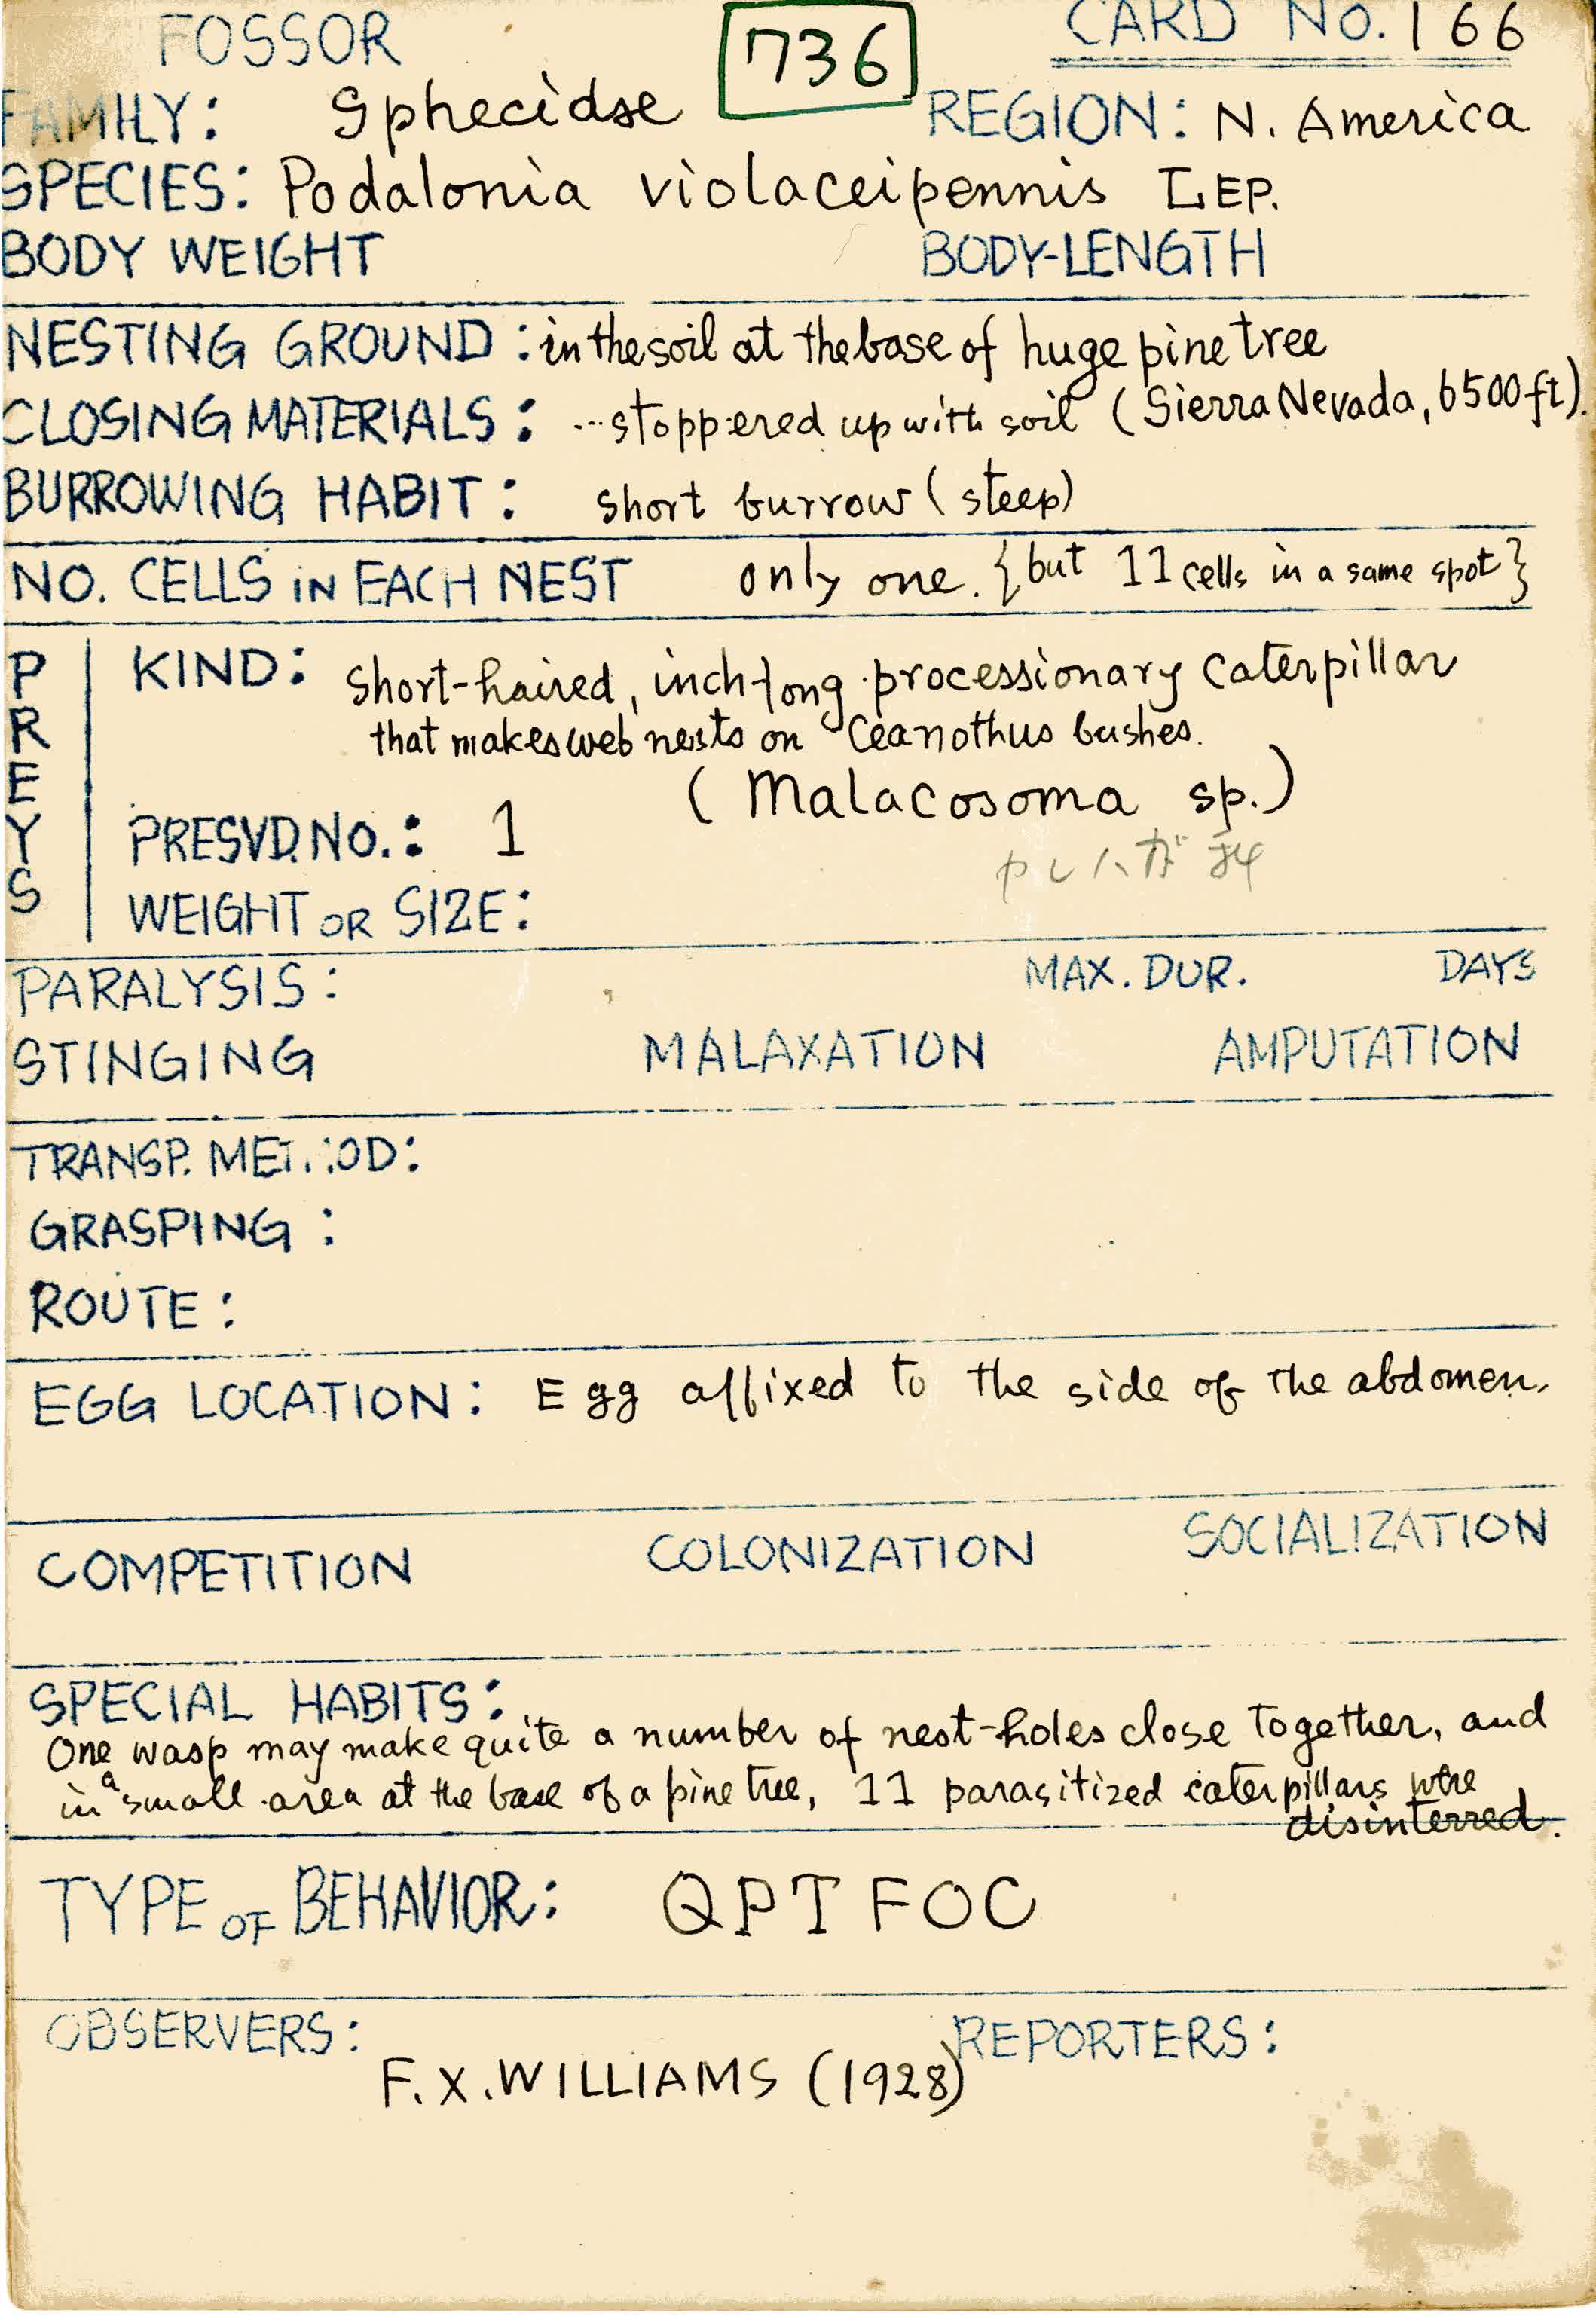 FOSSOR 736 CARD NO. 166
FAMILY: Sphecidae REGION: N. America
SPECIES: Podalonia violaceipennis LEP.
BODY WEIGHT BODY-LENGTH
NESTING GROUND: in the soil at the base of huge pine tree
CLOSING MATERIALS: ...stoppered up with soil (Sierra Nevada, 6500 ft).
BURROWING HABIT: short burrow (steep)
NO. CELLS IN EACH NEST only one. {but 11 cells in a same spot}
PREYS
KIND: short-haired, inch-long processionary caterpillar
that makes web nests on Ceanothus bushes.
(Malacosoma sp.)
PRESVD. NO.: 1
カレハガ科
WEIGHT OR SIZE:
PARALYSIS: MAX. DUR. DAYS
STINGING MALAXATION AMPUTATION
TRANSP. METHOD:
GRASPING:
ROUTE:
EGG LOCATION: Egg affixed to the side of the abdomen.
COMPETITION COLONIZATION SOCIALIZATION
SPECIAL HABITS:
One wasp may make quite a number of nest-holes close together, and
in a small area at the base of a pine tree, 11 parasitized caterpillars were
disinterred.
TYPE OF BEHAVIOR: QPTFOC
OBSERVERS: REPORTERS:
F. X. WILLIAMS (1928)